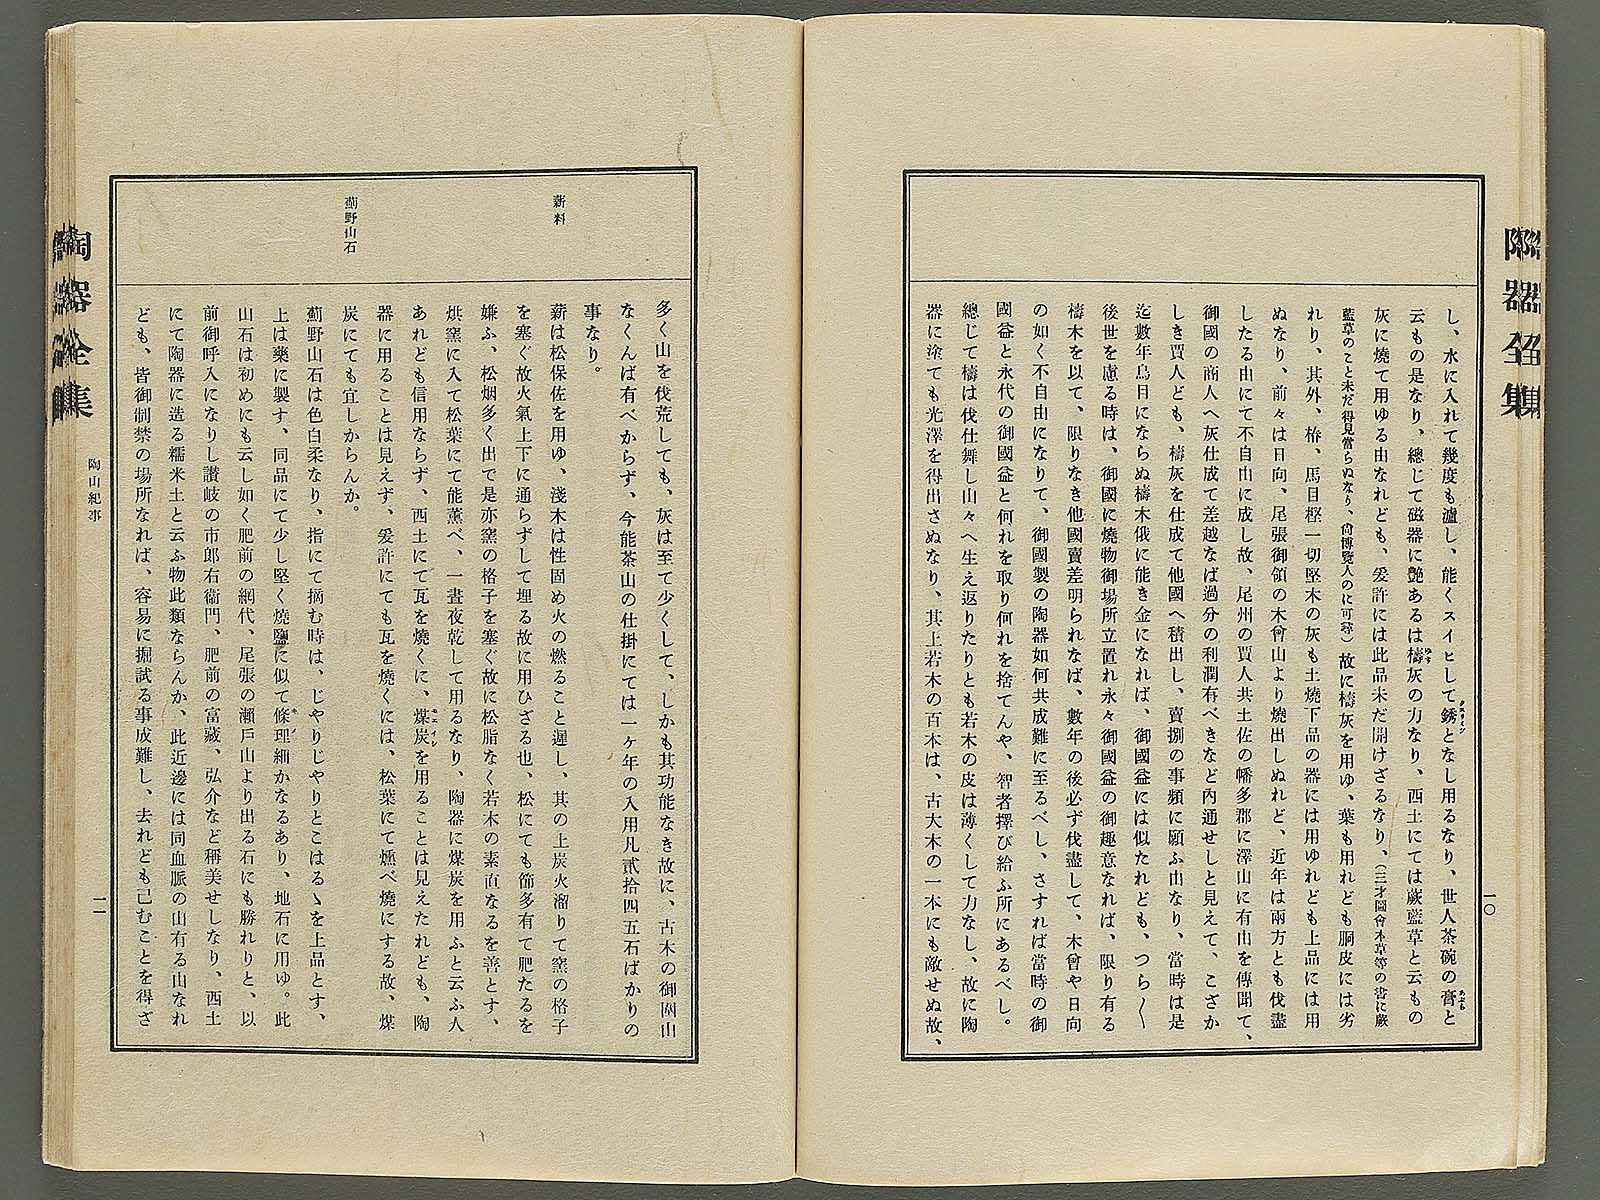 陶器全集
一〇
し、水に入れて幾度も濾し、能くスイヒとして銹となし用るなり、世人茶碗の膏と
云もの是なり、總じて磁器に艶あるは檮灰の力なり、西土にては蕨藍草と云もの
灰に燒て用ゆる由なれども、爰許には此品未だ開けざるなり、（三才圖會本草等の書に蕨
藍草のこと未だ得見當らぬなり、尙博覽人のに可尋）故に檮灰を用ゆ、葉も用れども胴皮には劣
れり、其外、柞、馬目樫一切堅木の灰も土燒下品の器には用ゆれども上品には用
ぬなり、前々は日向、尾張御領の木曾山より燒出しぬれど、近年は兩方とも伐盡
したる由にて不自由に成し故、尾州の賈人共土佐の幡多郡に澤山に有由を傳聞て、
御國の商人へ灰仕成て差越なば過分の利潤有べきなど內通せしと見えて、こざか
しき賈人ども、檮灰を仕成て他國へ積出し、賣捌の事頻に願ふ由なり、當時は是
迄數年鳥目にならぬ檮木俄に能き金になれば、御國益には似たれども、つら〱
後世を慮る時は、御國に燒物御場所立置れ永々御國益の御趣意なれば、限り有る
檮木を以て、限りなき他國賣差明られなば、數年の後必ず伐盡して、木曾や日向
の如く不自由になりて、御國製の陶器如何共成難に至るべし、さすれば當時の御
國益と永代の御國益と何れを取り何れを捨てんや、智者擇び給ふ所にあるべし。
總じて檮は伐仕舞し山々へ生え返りたりとも若木の皮は薄くして力なし、故に陶
器に塗ても光澤を得出さぬなり、其上若木の百本は、古大木の一本にも敵せぬ故、
多く山を伐荒しても、灰は至て少くして、しかも其功能なき故に、古木の御圍山
なくんば有べからず、今能茶山の仕掛にては一ヶ年の入用凡貳拾四五石ばかりの
事なり。
薪料
薪は松保佐を用ゆ、淺木は性固め火の燃ること遲し、其の上炭火溜りて窯の格子
を塞ぐ故火氣上下に通らずして埋る故に用ひざる也、松にても節多有て肥たるを
嫌ふ、松烟多く出で是亦窯の格子を塞ぐ故に松脂なく若木の素直なるを善とす、
烘窯に入て松葉にて能薰べ、一晝夜乾して用るなり、陶器に煤炭を用ふと云ふ人
あれども信用ならず、西土にて瓦を燒くに、煤炭を用ることは見えたれども、陶
器に用ることは見えず、爰許にても瓦を燒くには、松葉にて燻べ燒にする故、煤
炭にても宜しからんか。
薊野山石
薊野山石は色白柔なり、指にて摘む時は、じやりじやりとこはるゝを上品とす、
上は藥に製す、同品にて少し堅く燒鹽に似て條理細かなるあり、地石に用ゆ。此
山石は初めにも云し如く肥前の網代、尾張の瀨戶山より出る石にも勝れりと、以
前御呼入になりし讃岐の市郎右衞門、肥前の富藏、弘介など稱美せしなり、西土
にて陶器に造る糯米土と云ふ物此類ならんか、此近邊には同血脈の山有る山なれ
ども、皆御制禁の場所なれば、容易に掘試る事成難し、去れども已むことを得ざ
陶器全集
陶山紀事
一一